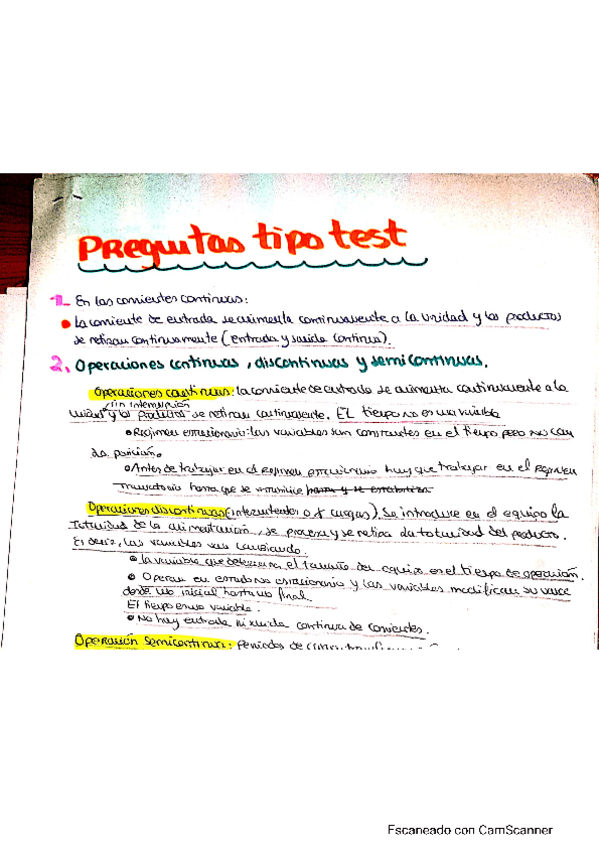 Preguntas tipo test
1_ En las corrientes continuas:
• La corriente de entrada se alimenta continuamente a la unidad y los productos
se retiran continuamente (entrada y salida continua).
2. Operaciones continuas, discontinuas y semicontinuas.
Operaciones continuas: la corriente de entrada se alimenta continuamente a la
sin interrupción
unidad y los productos se retiran continuamente. EL tiempo no es una variable
• Regimen estacionario: las variables son constantes en el tiempo pero no con
la posición.
• Antes de trabajar en el regimen estacionario hay que trabajar en el regimen
transitorio hasta que se estabilice
Operaciones discontinuas (intermitentes o x cargas) Se introduce en el equipo la
totalidad de la alimentación, se procesa y se retira la totalidad del producto.
Es decir, las variables van cambiando.
• La variable que determina el tamaño del equipo es el tiempo de operación.
• Operan en estado no estacionario y las variables modifican su valor
desde uno inicial hasta uno final.
El tiempo es una variable.
• No hay entrada ni salida continua de corrientes.
Operación semicontinua: Periodos de
Escaneado con CamScanner